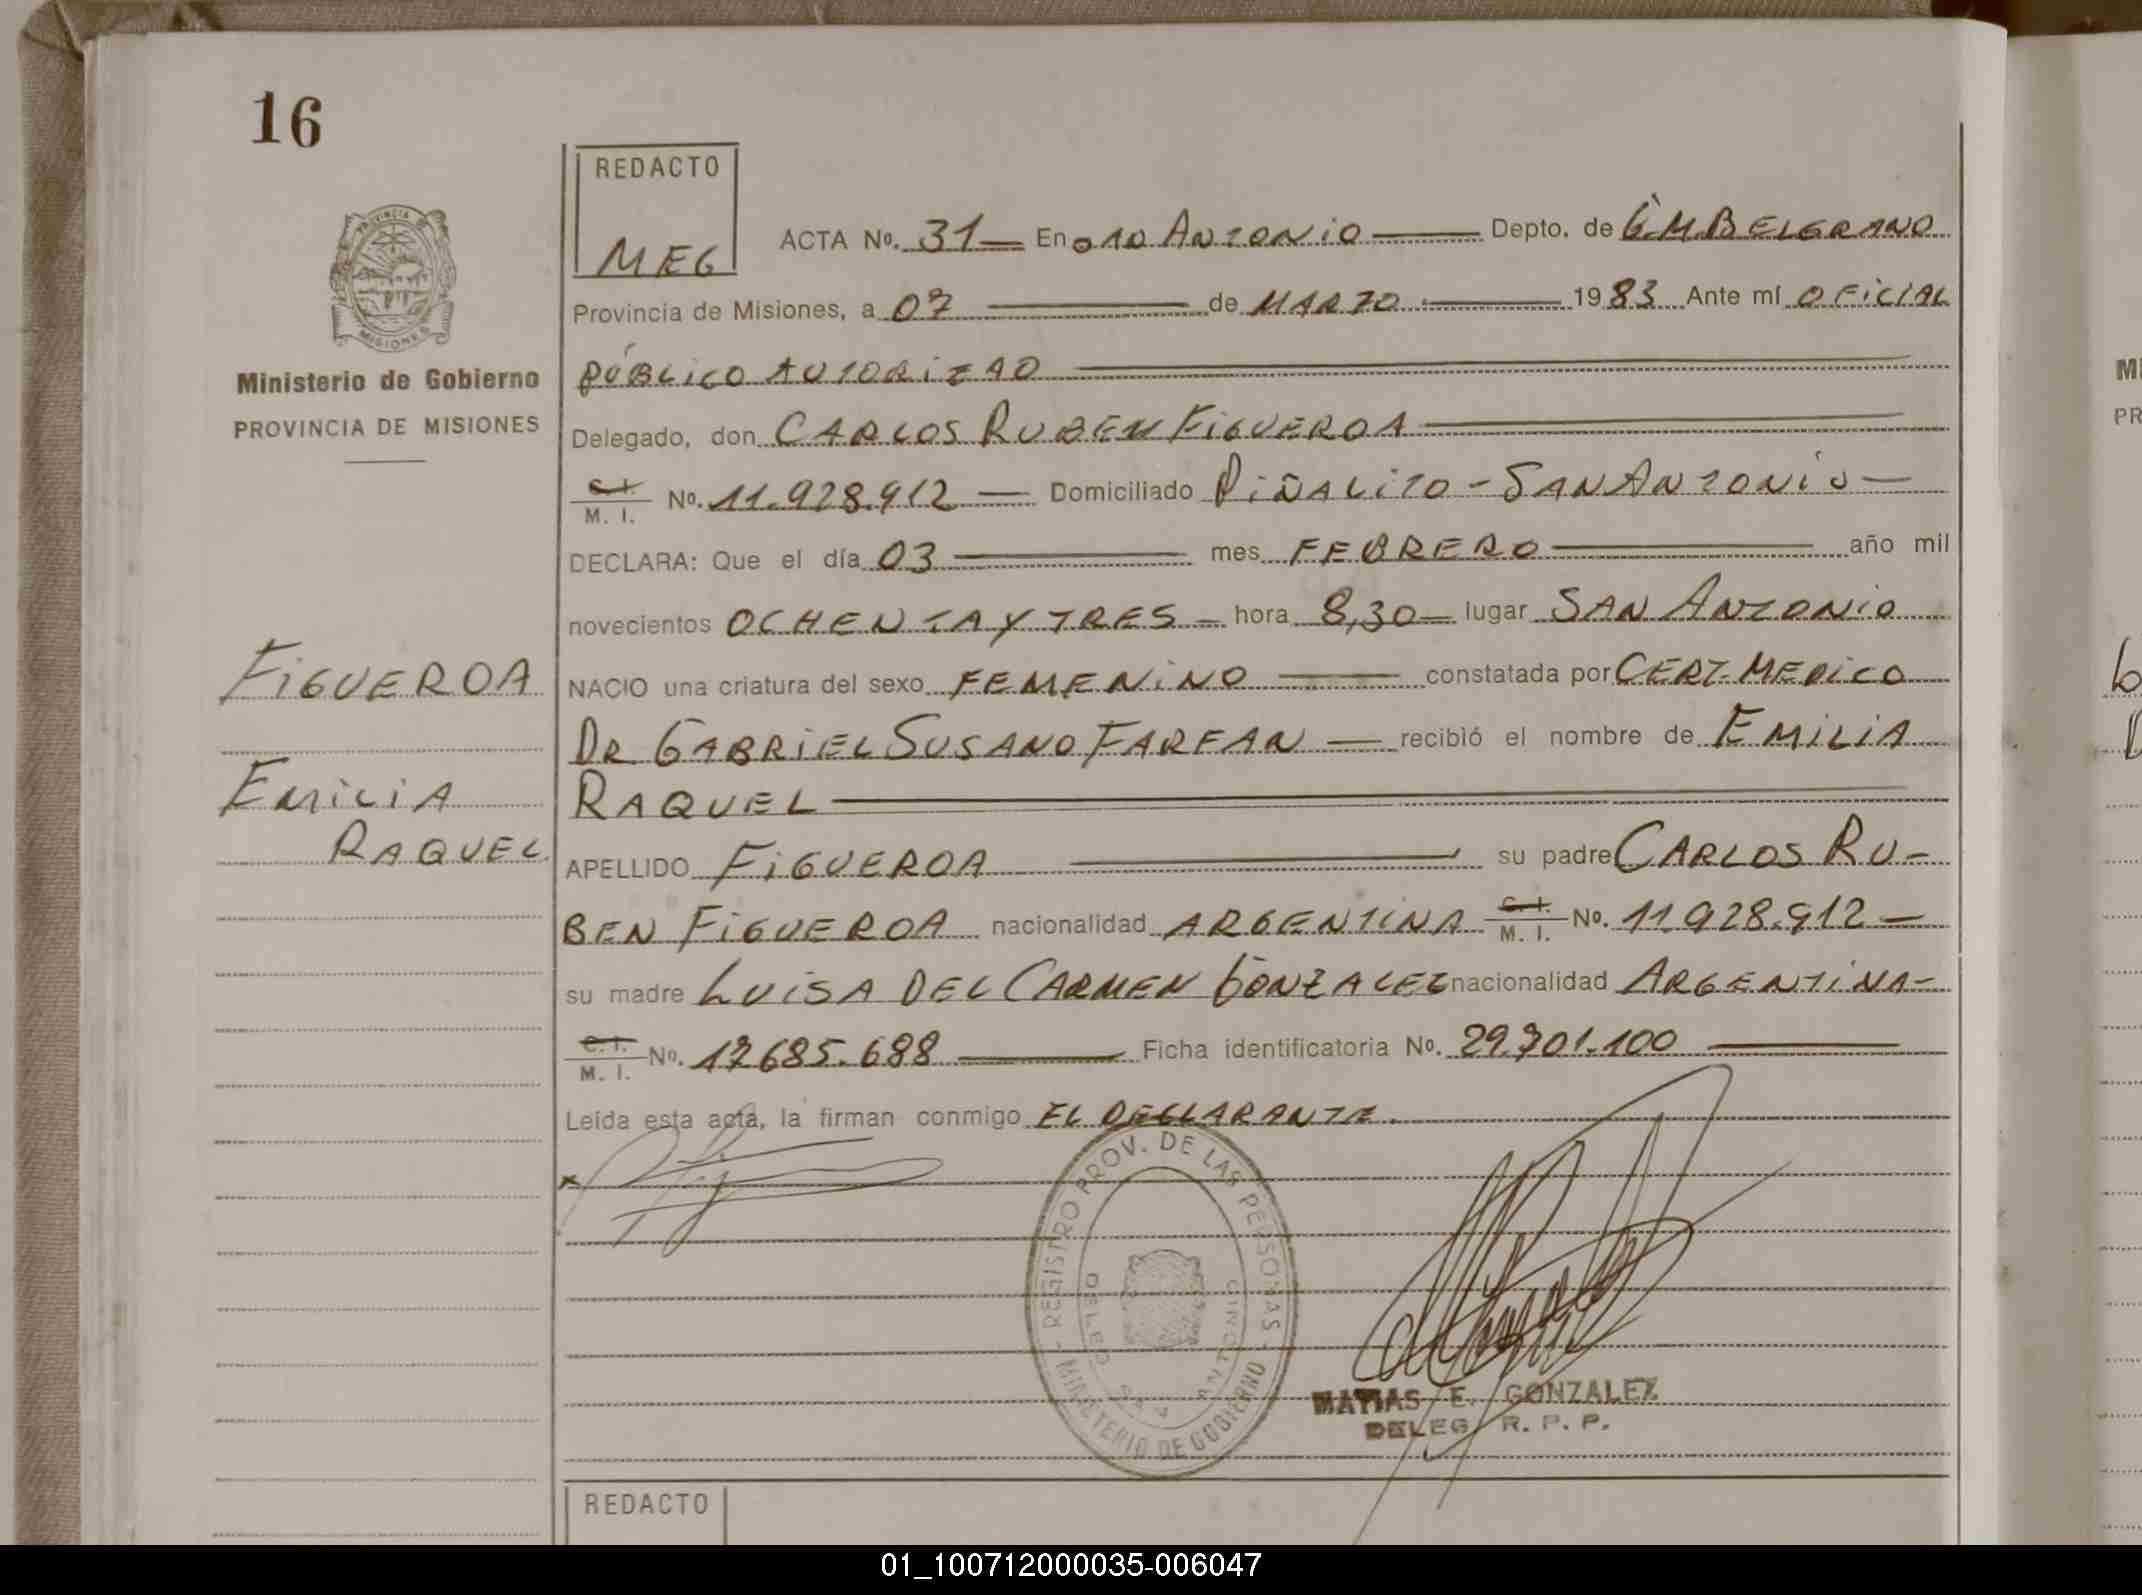 16
REDACTO
MEG
PROVINCIA DE
MISIONES
Ministerio de Gobierno
PROVINCIA DE MISIONES
ACTA No. 31 En Antonio Depto. de G.M.BELGRANO
Provincia de Misiones, a 07 de MARZO 1983 Ante mí OFICIAL
PÚBLICO AUTORIZAO
Delegado, don CARLOS RUBEN FIGUEROA
C. I. M. I. No. 11.928.912 — Domiciliado PIÑALITO - SAN ANTONIO —
DECLARA: Que el día 03 mes FEBRERO año mil
novecientos OCHENTA Y TRES — hora 8,30 — lugar SAN ANTONIO
FIGUEROA
NACIO una criatura del sexo FEMENINO — constatada por CERT. MEDICO
DR. GABRIEL SUSANO FARFAN — recibió el nombre de EMILIA
EMILIA
RAQUEL
RAQUEL
APELLIDO FIGUEROA su padre CARLOS RU-
BEN FIGUEROA nacionalidad ARGENTINA C. I. M. I. No. 11.928.912 —
su madre LUISA DEL CARMEN GONZALEZ nacionalidad ARGENTINA-
C. I. M. I. No. 17685.688 Ficha identificatoria No. 29.701.100
Leída esta acta, la firman conmigo EL DECLARANTE.
REGISTRO PROV. DE LAS PERSONAS - MINISTERIO DE GOBIERNO -
DELEG. SAN ANTONIO
MATIAS E. GONZALEZ
DELEG R. P. P.
REDACTO
01_100712000035-006047